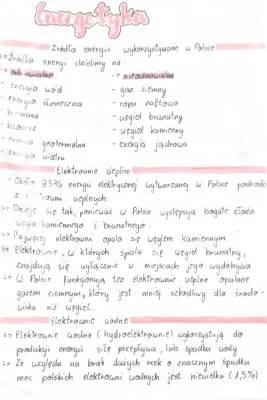 Energetyka
Źródła energii wykorzystywane w Polsce
↳ Źródła energii dzielimy na
- odnawialne - nieodnawialne
- energia wód - gaz ziemny
- energia słoneczna - ropa naftowa
- biomasa - węgiel brunatny
- biogaz - węgiel kamienny
- energia geotermalna - energia jądrowa
- energia wiatru
Elektrownie cieplne
- Około 85% energii elektrycznej wytwarzanej w Polsce pochodzi
z cieplnych
↳ Dzieje się tak, ponieważ w Polsce występują bogate złoża
węgla kamiennego i brunatnego.
↳ Najwięcej elektrowni opala się węglem kamiennym.
↳ Elektrownie, w których spala się węgiel brunatny,
znajdują się wyłącznie w miejscach jego wydobycia
↳ W Polsce funkcjonują też elektrownie cieplne opalane
gazem ziemnym, który jest mniej szkodliwy dla środo-
wiska niż węgiel.
Elektrownie wodne
↳ Elektrownie wodne (hydroelektrownie) wykorzystują do
produkcji energii siłę przepływu, lub spadku wody
↳ Ze względu na brak dużych rzek o znacznym spadku
moc polskich elektrowni wodnych jest niewielka (1,5%)